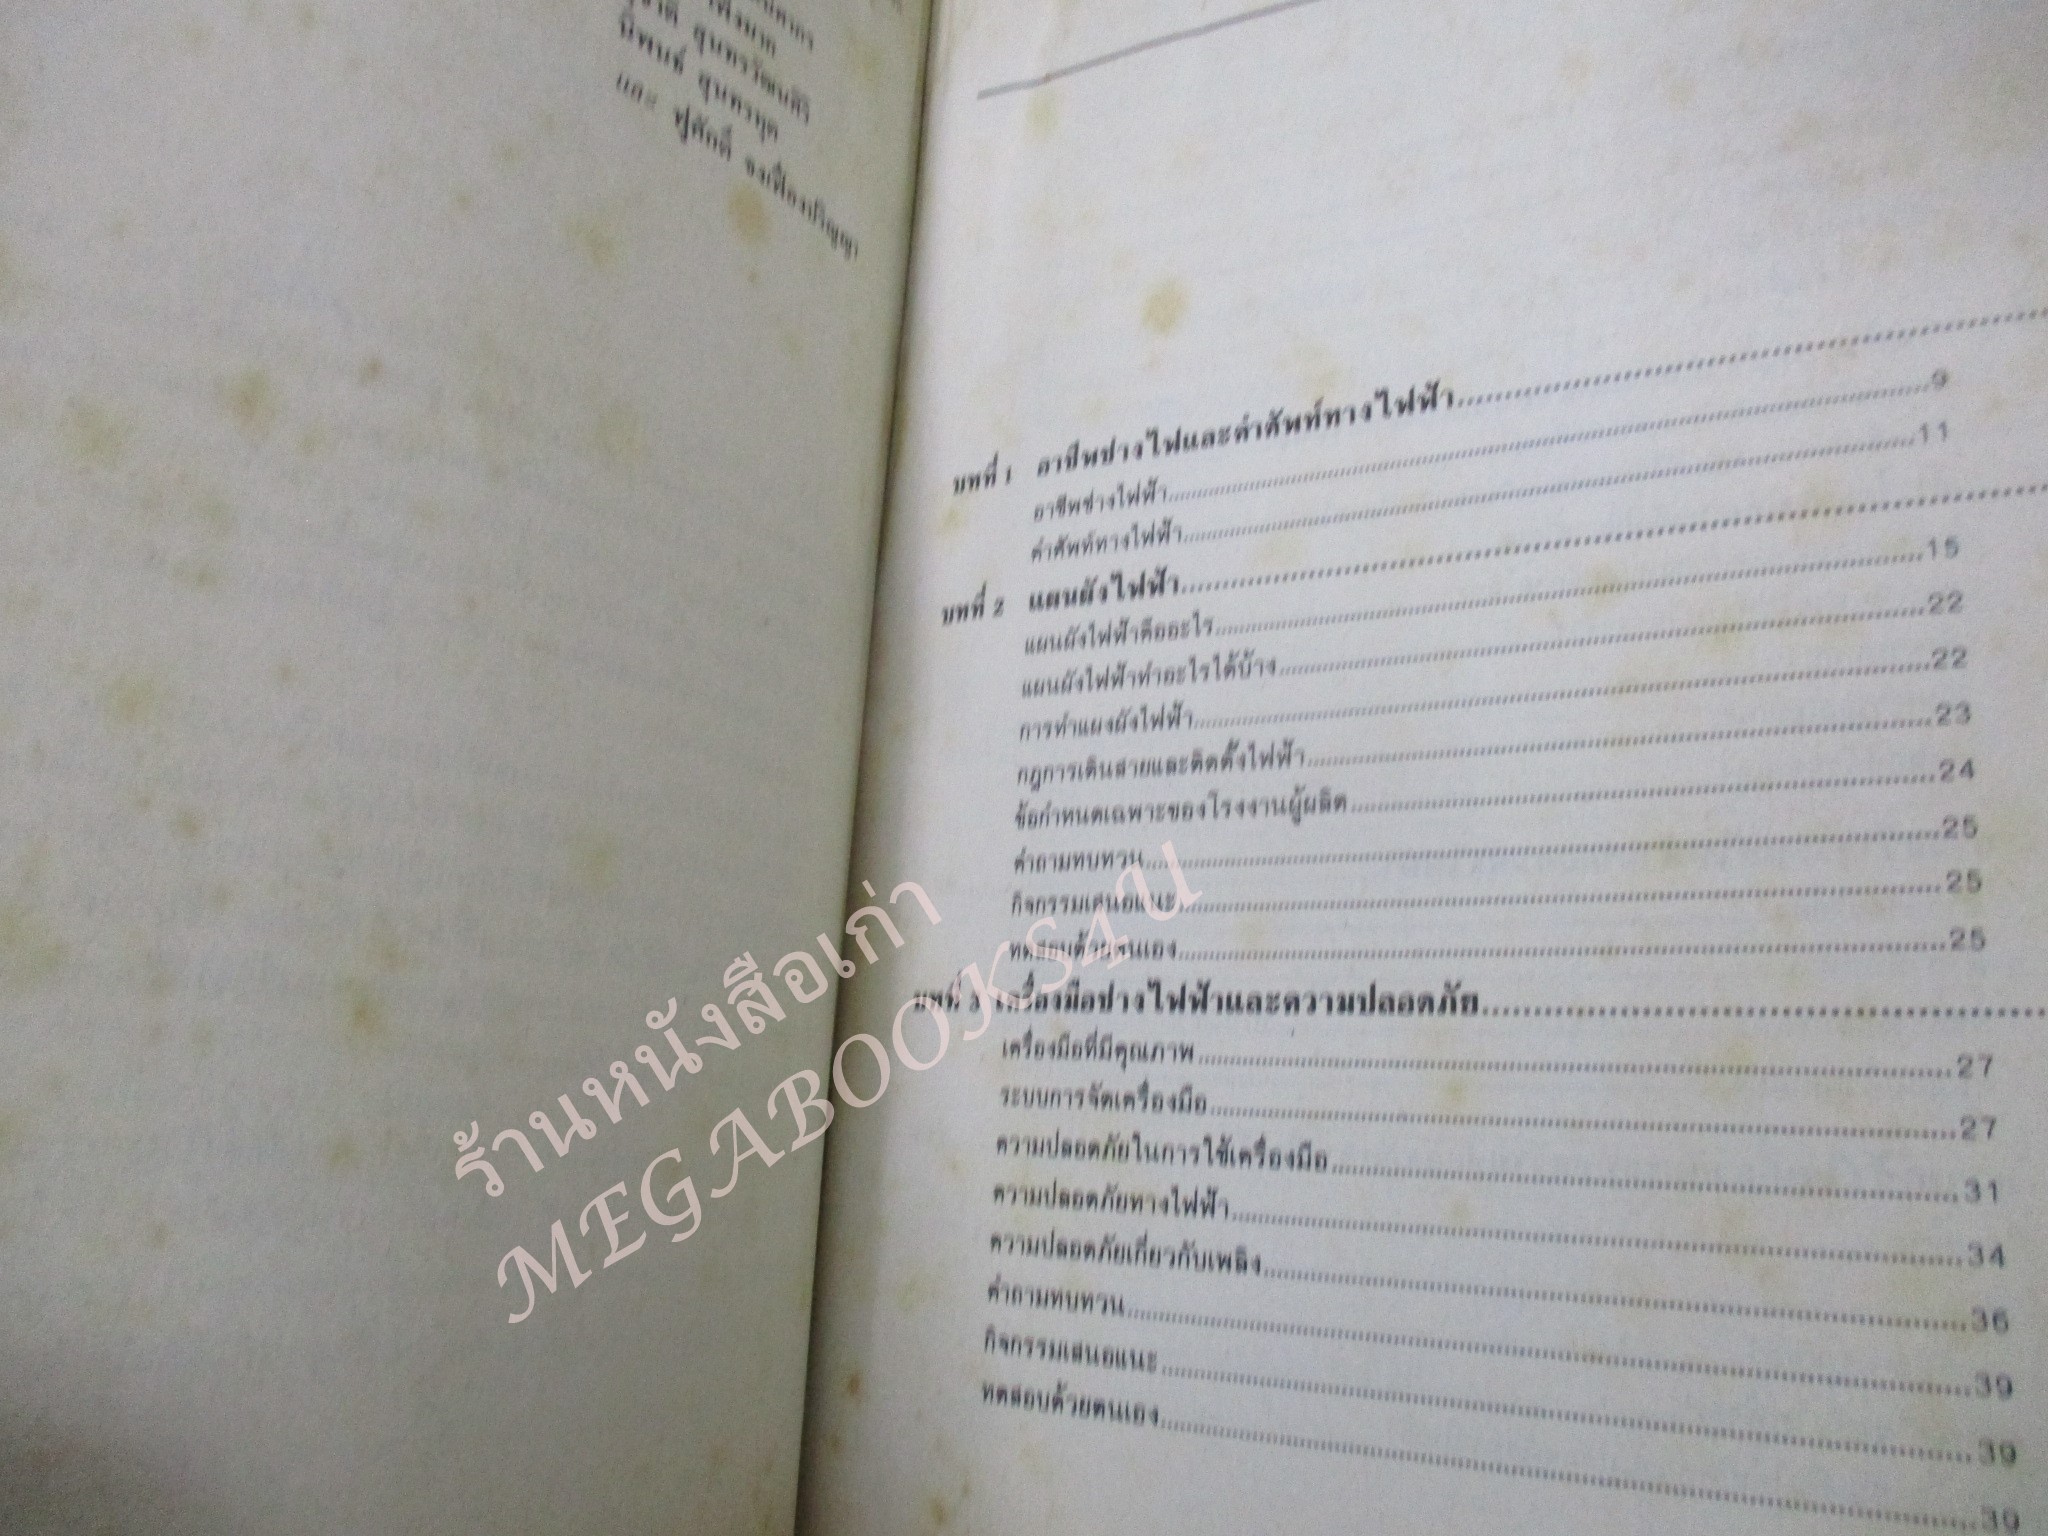 นิพนธ์ สุนทรบุต
และ ฟูศักดิ์
บทที่ 1 อาชีพช่างไฟและคำศัพท์ทางไฟฟ้า
อาชีพช่างไฟฟ้า 9
คำศัพท์ทางไฟฟ้า 11
บทที่ 2 แผนผังไฟฟ้า
แผนผังไฟฟ้าคืออะไร 15
แผนผังไฟฟ้าทำอะไรได้บ้าง 22
การทำแผงผังไฟฟ้า 22
กฎการเดินสายและติดตั้งไฟฟ้า 23
ข้อกำหนดเฉพาะของโรงงานผู้ผลิต 24
คำถามทบทวน 25
กิจกรรมเสนอแนะ 25
ทดสอบด้วยตนเอง 25
บทที่ 3 เครื่องมือช่างไฟฟ้าและความปลอดภัย
เครื่องมือที่มีคุณภาพ 27
ระบบการจัดเครื่องมือ 27
ความปลอดภัยในการใช้เครื่องมือ 31
ความปลอดภัยทางไฟฟ้า 34
ความปลอดภัยเกี่ยวกับเพลิง 36
คำถามทบทวน 39
กิจกรรมเสนอแนะ 39
ทดสอบด้วยตนเอง 39
ร้านหนังสือเก่า
MEGABOOKS4U